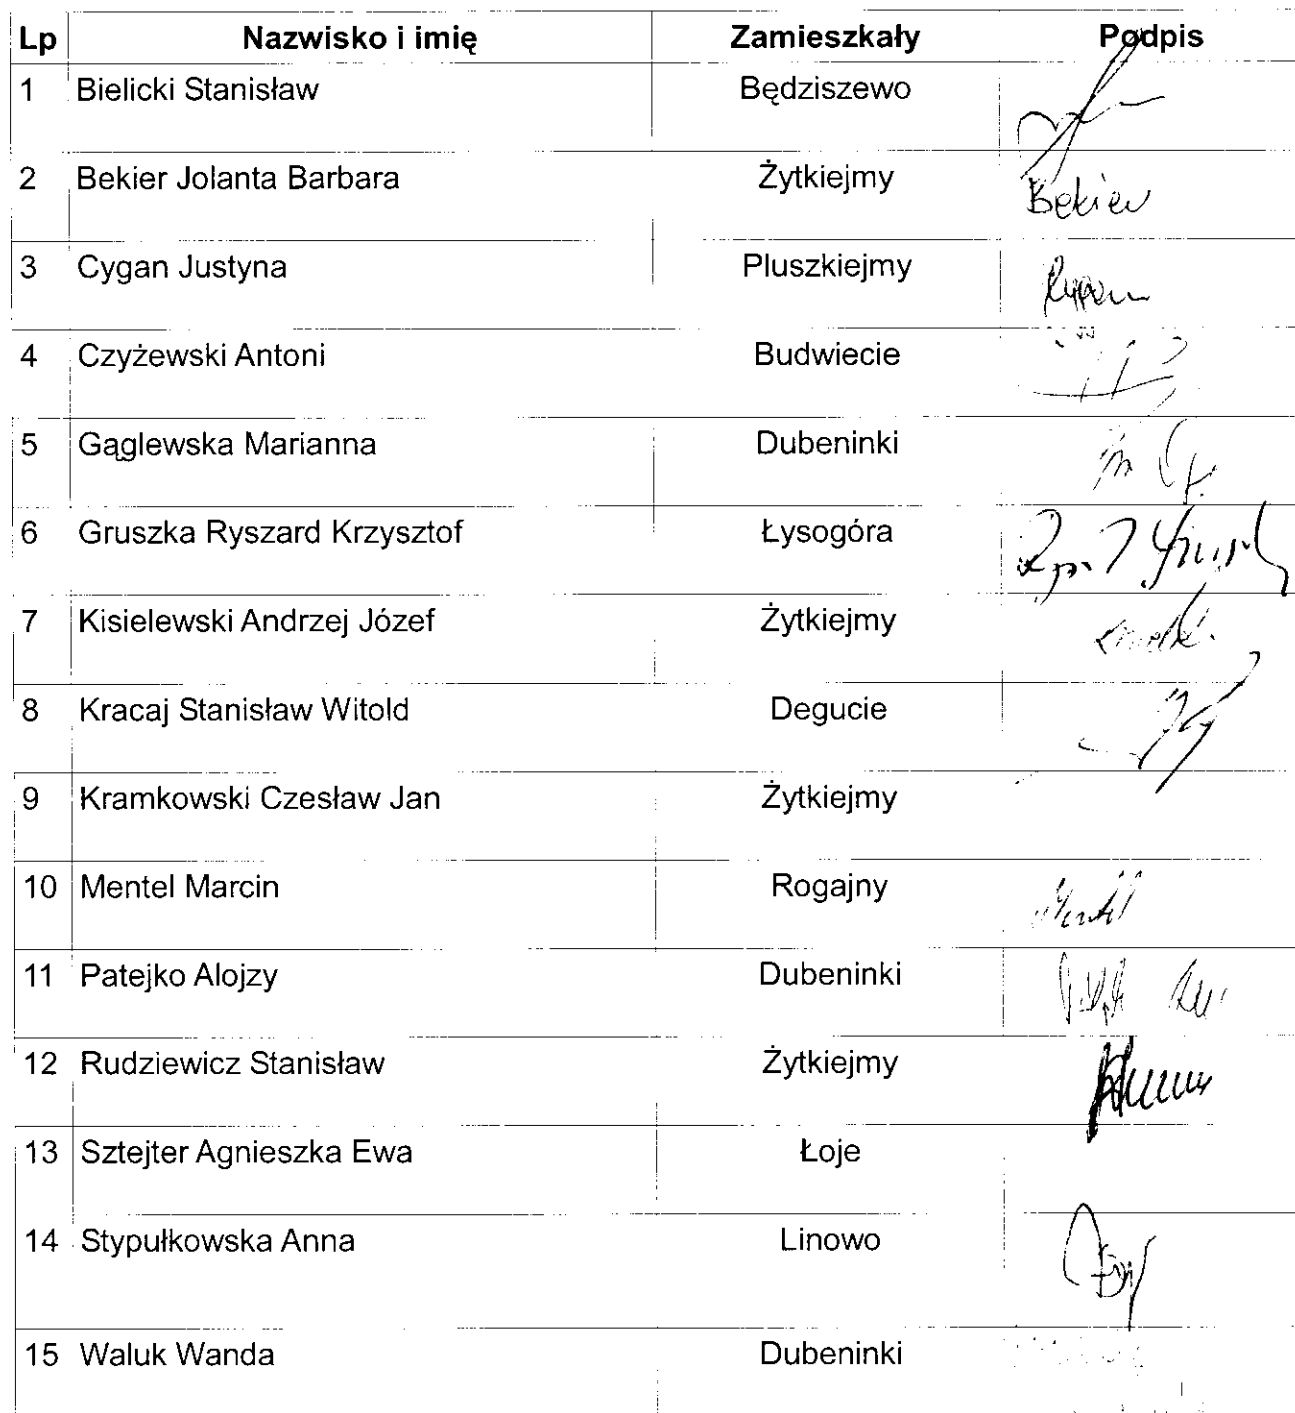 Lp Nazwisko i imię Zamieszkały Podpis
1 Bielicki Stanisław Będziszewo
2 Bekier Jolanta Barbara Żytkiejmy Bekier
3 Cygan Justyna Pluszkiejmy
4 Czyżewski Antoni Budwiecie
5 Gąglewska Marianna Dubeninki
6 Gruszka Ryszard Krzysztof Łysogóra
7 Kisielewski Andrzej Józef Żytkiejmy
8 Kracaj Stanisław Witold Degucie
9 Kramkowski Czesław Jan Żytkiejmy
10 Mentel Marcin Rogajny
11 Patejko Alojzy Dubeninki
12 Rudziewicz Stanisław Żytkiejmy
13 Sztejter Agnieszka Ewa Łoje
14 Stypułkowska Anna Linowo
15 Waluk Wanda Dubeninki